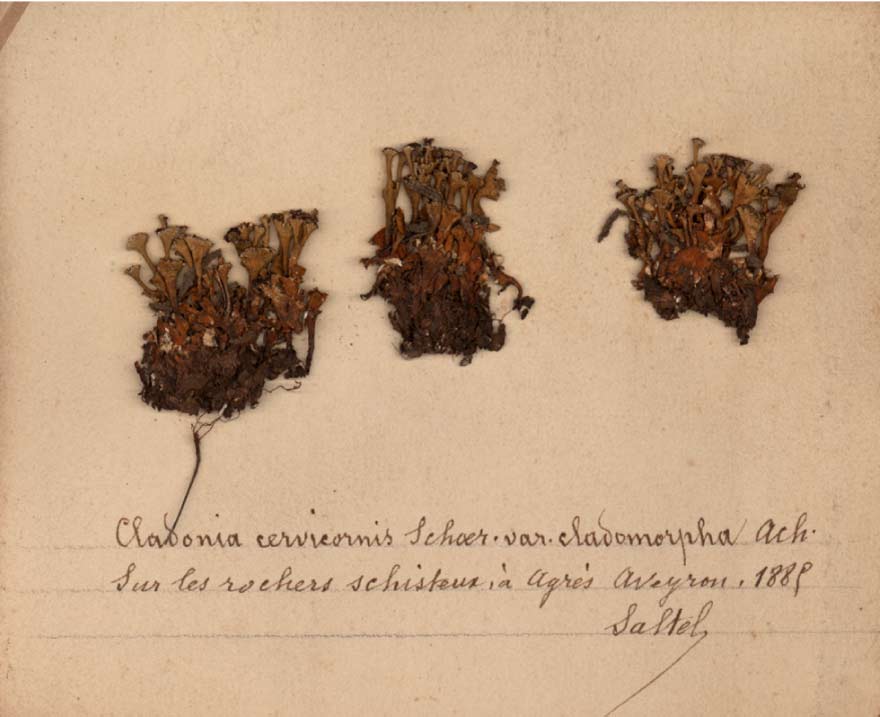 Cladonia cervicornis Schœr. var. cladomorpha Ach.
Sur les rochers schisteux, à Agrés Aveyron. 1885
Saltel